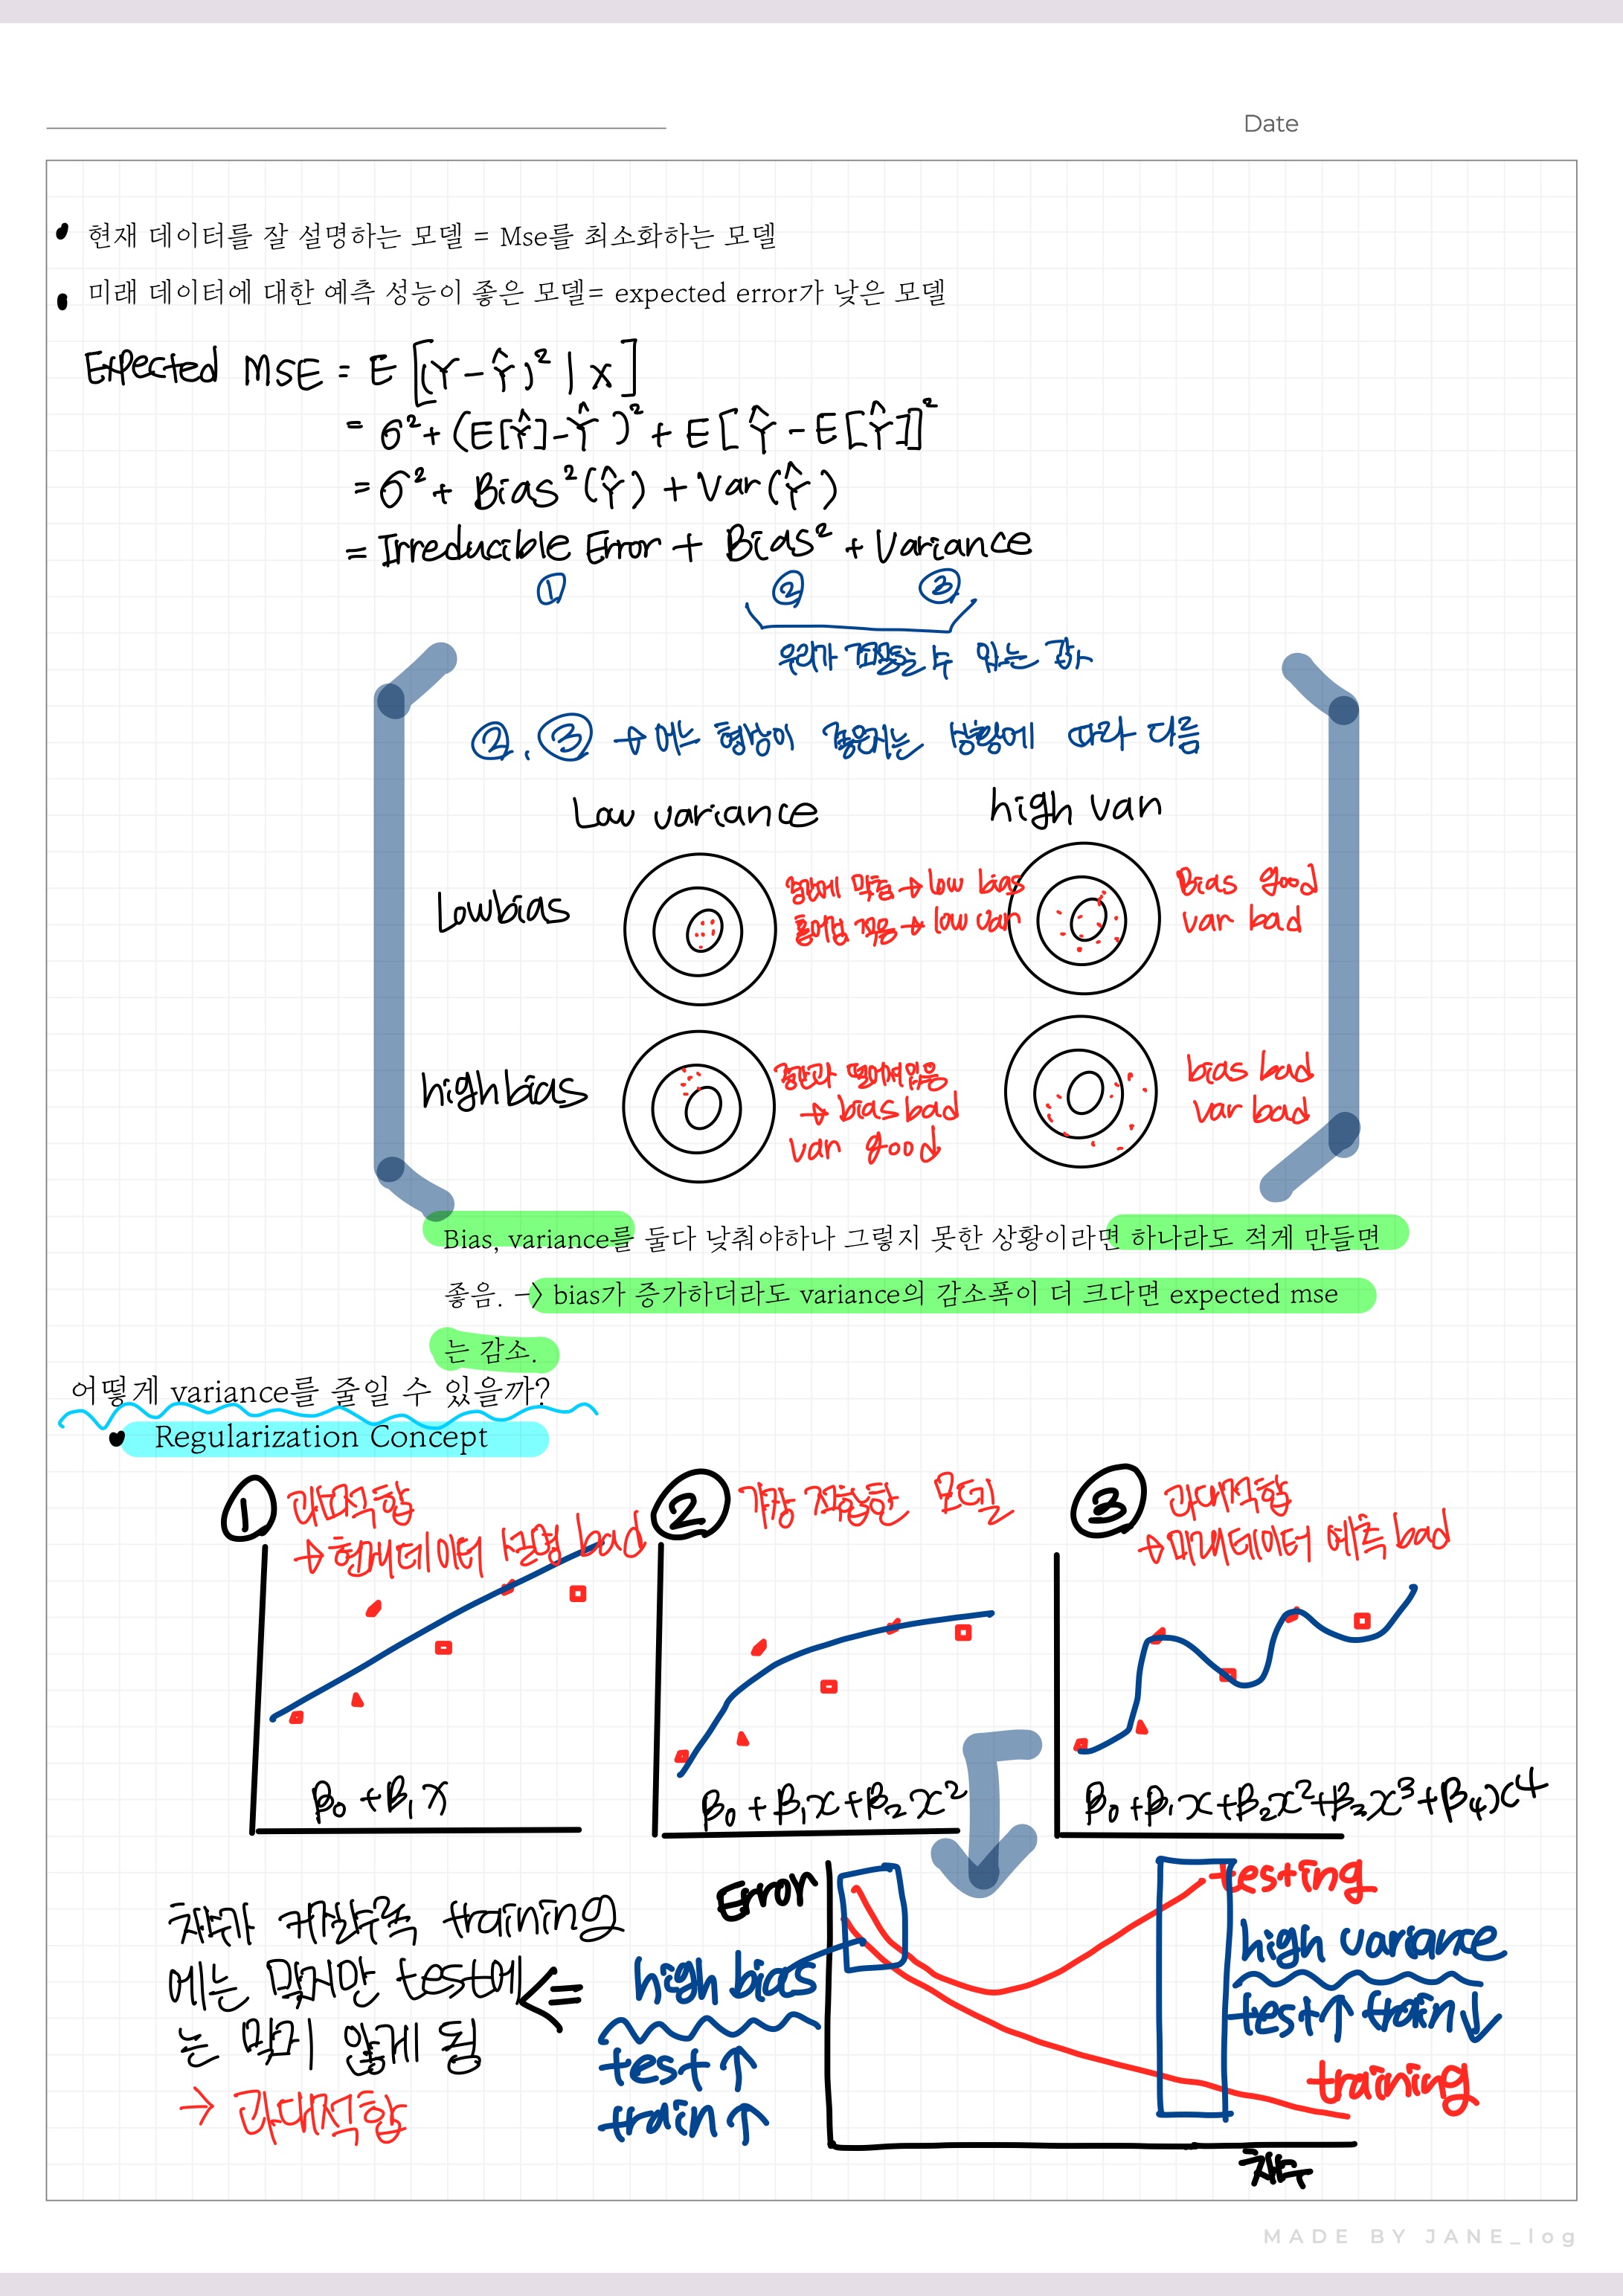 Date
현재 데이터를 잘 설명하는 모델 = Mse를 최소화하는 모델
미래 데이터에 대한 예측 성능이 좋은 모델= expected error가 낮은 모델
Expected MSE = E [(Y-Ŷ)² | X]
= σ²+ (E[Ŷ]-Ŷ)² + E[Ŷ - E[Ŷ]]²
= σ²+ Bias²(Ŷ) + Var(Ŷ)
= Irreducible Error + Bias² + Variance
① ② ③
우리가 줄일 수 있는 값
②, ③ → 어느 형상이 좋은지는 상황에 따라 다름
Low variance high van
Low bias
중간에 맞춤 → low bias
흩어짐 적음 → low van
Bias good
var bad
high bias
중간과 떨어져있음
→ bias bad
van good
bias bad
var bad
Bias, variance를 둘다 낮춰야하나 그렇지 못한 상황이라면 하나라도 적게 만들면
좋음. -> bias가 증가하더라도 variance의 감소폭이 더 크다면 expected mse
는 감소.
어떻게 variance를 줄일 수 있을까?
Regularization Concept
① 과소적합
→ 현재데이터 설명 bad
β₀ + β₁x
② 가장 적합한 모델
β₀ + β₁x + β₂x²
③ 과대적합
→ 미래데이터 예측 bad
β₀ + β₁x + β₂x² + β₃x³ + β₄x⁴
차수가 커질수록 training
에는 맞지만 test에
는 맞지 않게 됨
→ 과대적합
<=
Error
high bias
test ↑
train ↑
testing
high variance
test↑ train↓
training
차수
MADE BY JANE_log